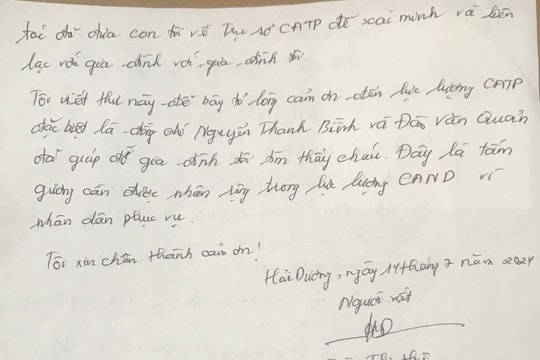 tác đã đưa con tôi về Trụ sở CATP để xác minh và liên
lạc với gia đình với gia đình tôi.
Tôi viết thư này để bày tỏ lòng cảm ơn đến lực lượng CATP
đặc biệt là đồng chí Nguyễn Thanh Bình và Đào Văn Quân
đã giúp đỡ gia đình tôi tìm thấy cháu. Đây là tấm
gương cần được nhân rộng trong lực lượng CAND vì
nhân dân phục vụ.
Tôi xin chân thành cảm ơn!
Hải Dương, ngày 14 tháng 7 năm 2024
Người viết